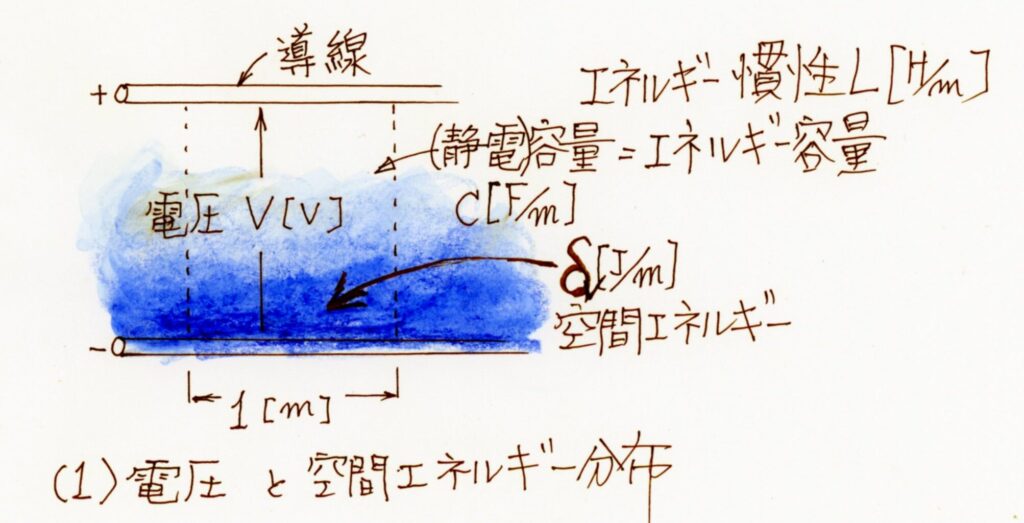 導線
エネルギー慣性 L [H/m]
+
(静電)容量 = エネルギー容量
電圧 V [V]
C [F/m]
δ [J/m]
空間エネルギー
-
1 [m]
(1) 電圧 と 空間エネルギー分布